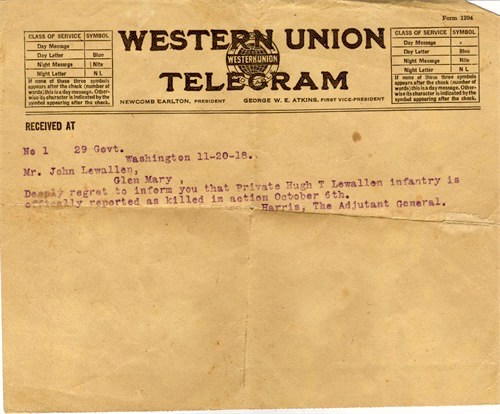 Form 1204
CLASS OF SERVICE SYMBOL
Day Message
Day Letter Blue
Night Message Nite
Night Letter N L
If none of these three symbols
appears after the check (number of
words) this is a day message. Other-
wise its character is indicated by the
symbol appearing after the check.
WESTERN UNION
WESTERN UNION
TELEGRAM
NEWCOMB CARLTON, PRESIDENT GEORGE W. E. ATKINS, FIRST VICE-PRESIDENT
CLASS OF SERVICE SYMBOL
Day Message
Day Letter Blue
Night Message Nite
Night Letter N L
If none of these three symbols
appears after the check (number of
words) this is a day message. Other-
wise its character is indicated by the
symbol appearing after the check.
RECEIVED AT
No 1 29 Govt.
Washington 11-20-18.
Mr. John Lewallen,
Glen Mary ,
Deeply regret to inform you that Private Hugh T Lewallen infantry is
offically reported as killed in action October 6th.
Harris, The Adjutant General.